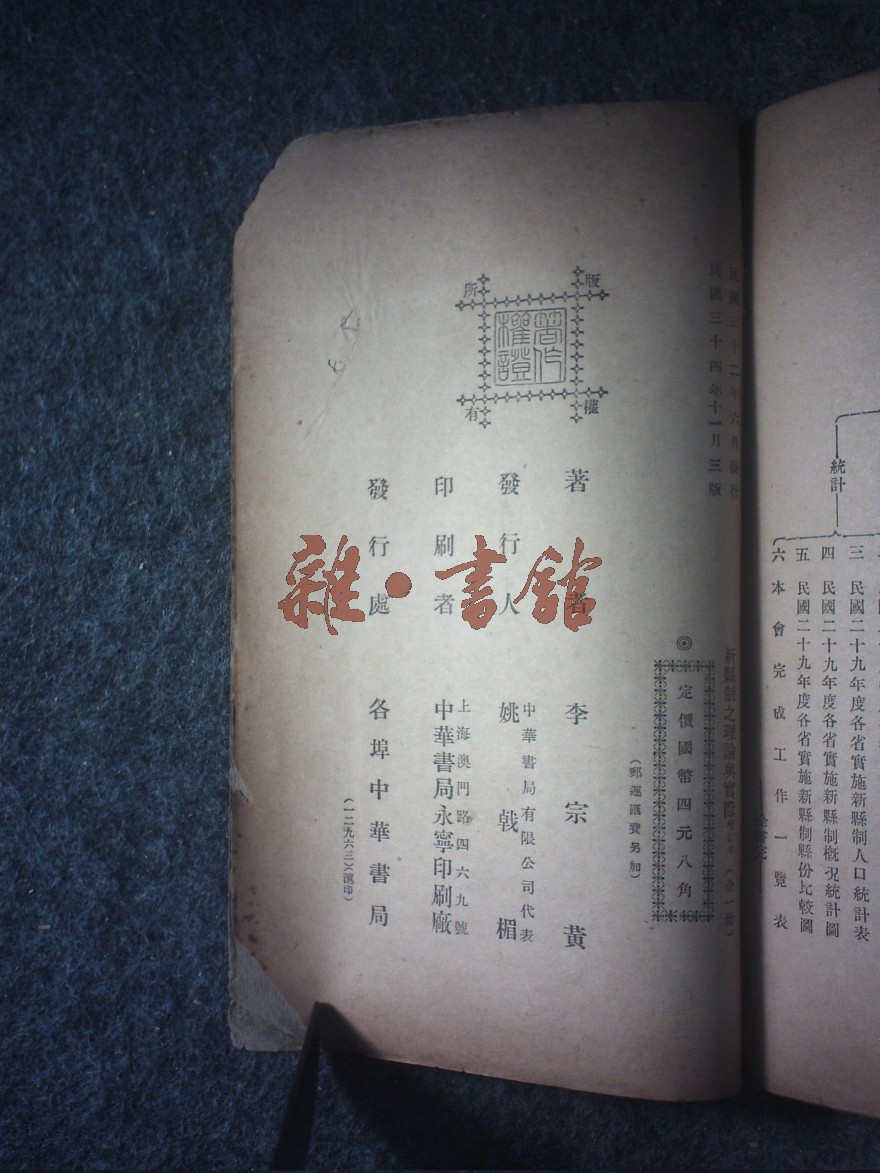 統計
三 民國二十九年度各省實施新縣制人口統計表
四 民國二十九年度各省實施新縣制概況統計圖
五 民國二十九年度各省實施新縣制縣份比較圖
六 本會完成工作一覽表
民國三十二年六月發行
民國三十四年十一月三版
新縣制之理論與實際
(全一冊)
◎
定價國幣四元八角
(郵運匯費另加)
版權所有
著作權證
著者 李宗黃
發行人 中華書局有限公司代表
姚戟楣
印刷者 上海澳門路四六九號
中華書局永寧印刷廠
發行處 各埠中華書局
(一二九六三)(滬印)
雜·書館